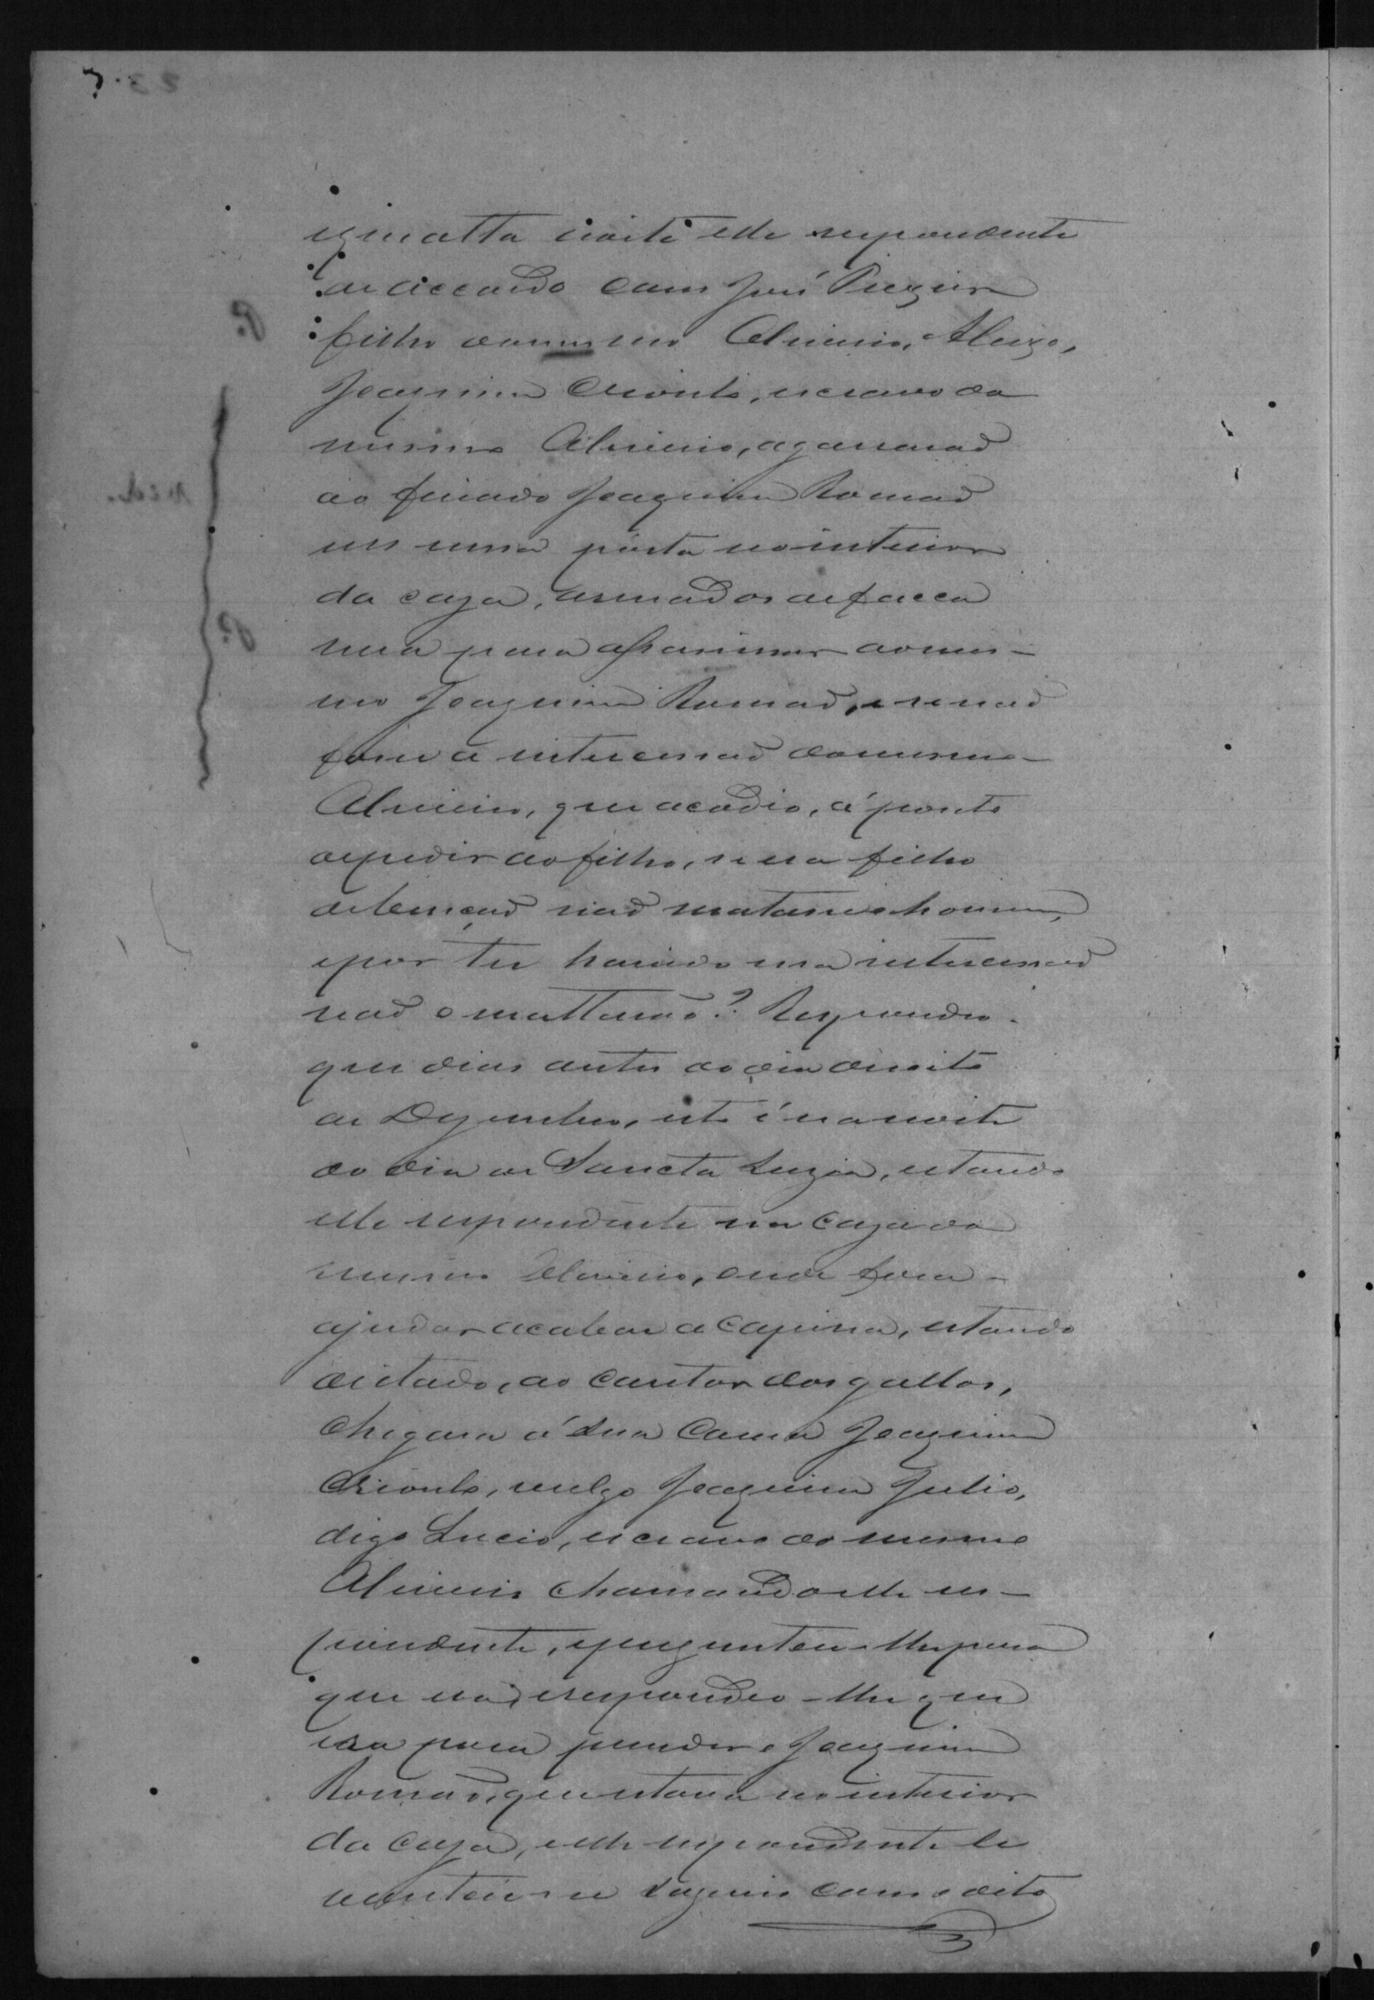 e n'alta noite elle respondente
de accordo com José Pinheiro
filho do mesmo Alminio, Aleixo,
Joaquim Crioulo, escravo do
mesmo Alminio, agarrarão
ao finado Joaquim Romão
em uma pórta no interior
da caza, armados de facca
nua para assassinar ao mes-
mo Joaquim Romão, e se não
fosse a intercessão do mesmo
Alminio, que acodio, á ponto
de pedir ao filho, se era filho
de benção não matasse o homem,
e por ter havido essa intercessão
não o mattarão? Respondeo
que dias antes do dia desoito
de Dezembro, isto é na noite
do dia de Sancta Luzia, estando
elle respondente na caza do
mesmo Alminio, onde fora
ajudar acabar a capina, estando
deitado, ao cantar dos gallos,
chegara á sua cama Joaquim
Crioulo, vulgo Joaquim Julio,
digo Lucio, escravo do mesmo
Alminio chamando elle res-
pondente, e perguntou-lhe para
que era, e respondeo-lhe que
era para prender o Joaquim
Romão, que estava no interior
da caza, e elle respondente le
vantou-se e seguio com o dito